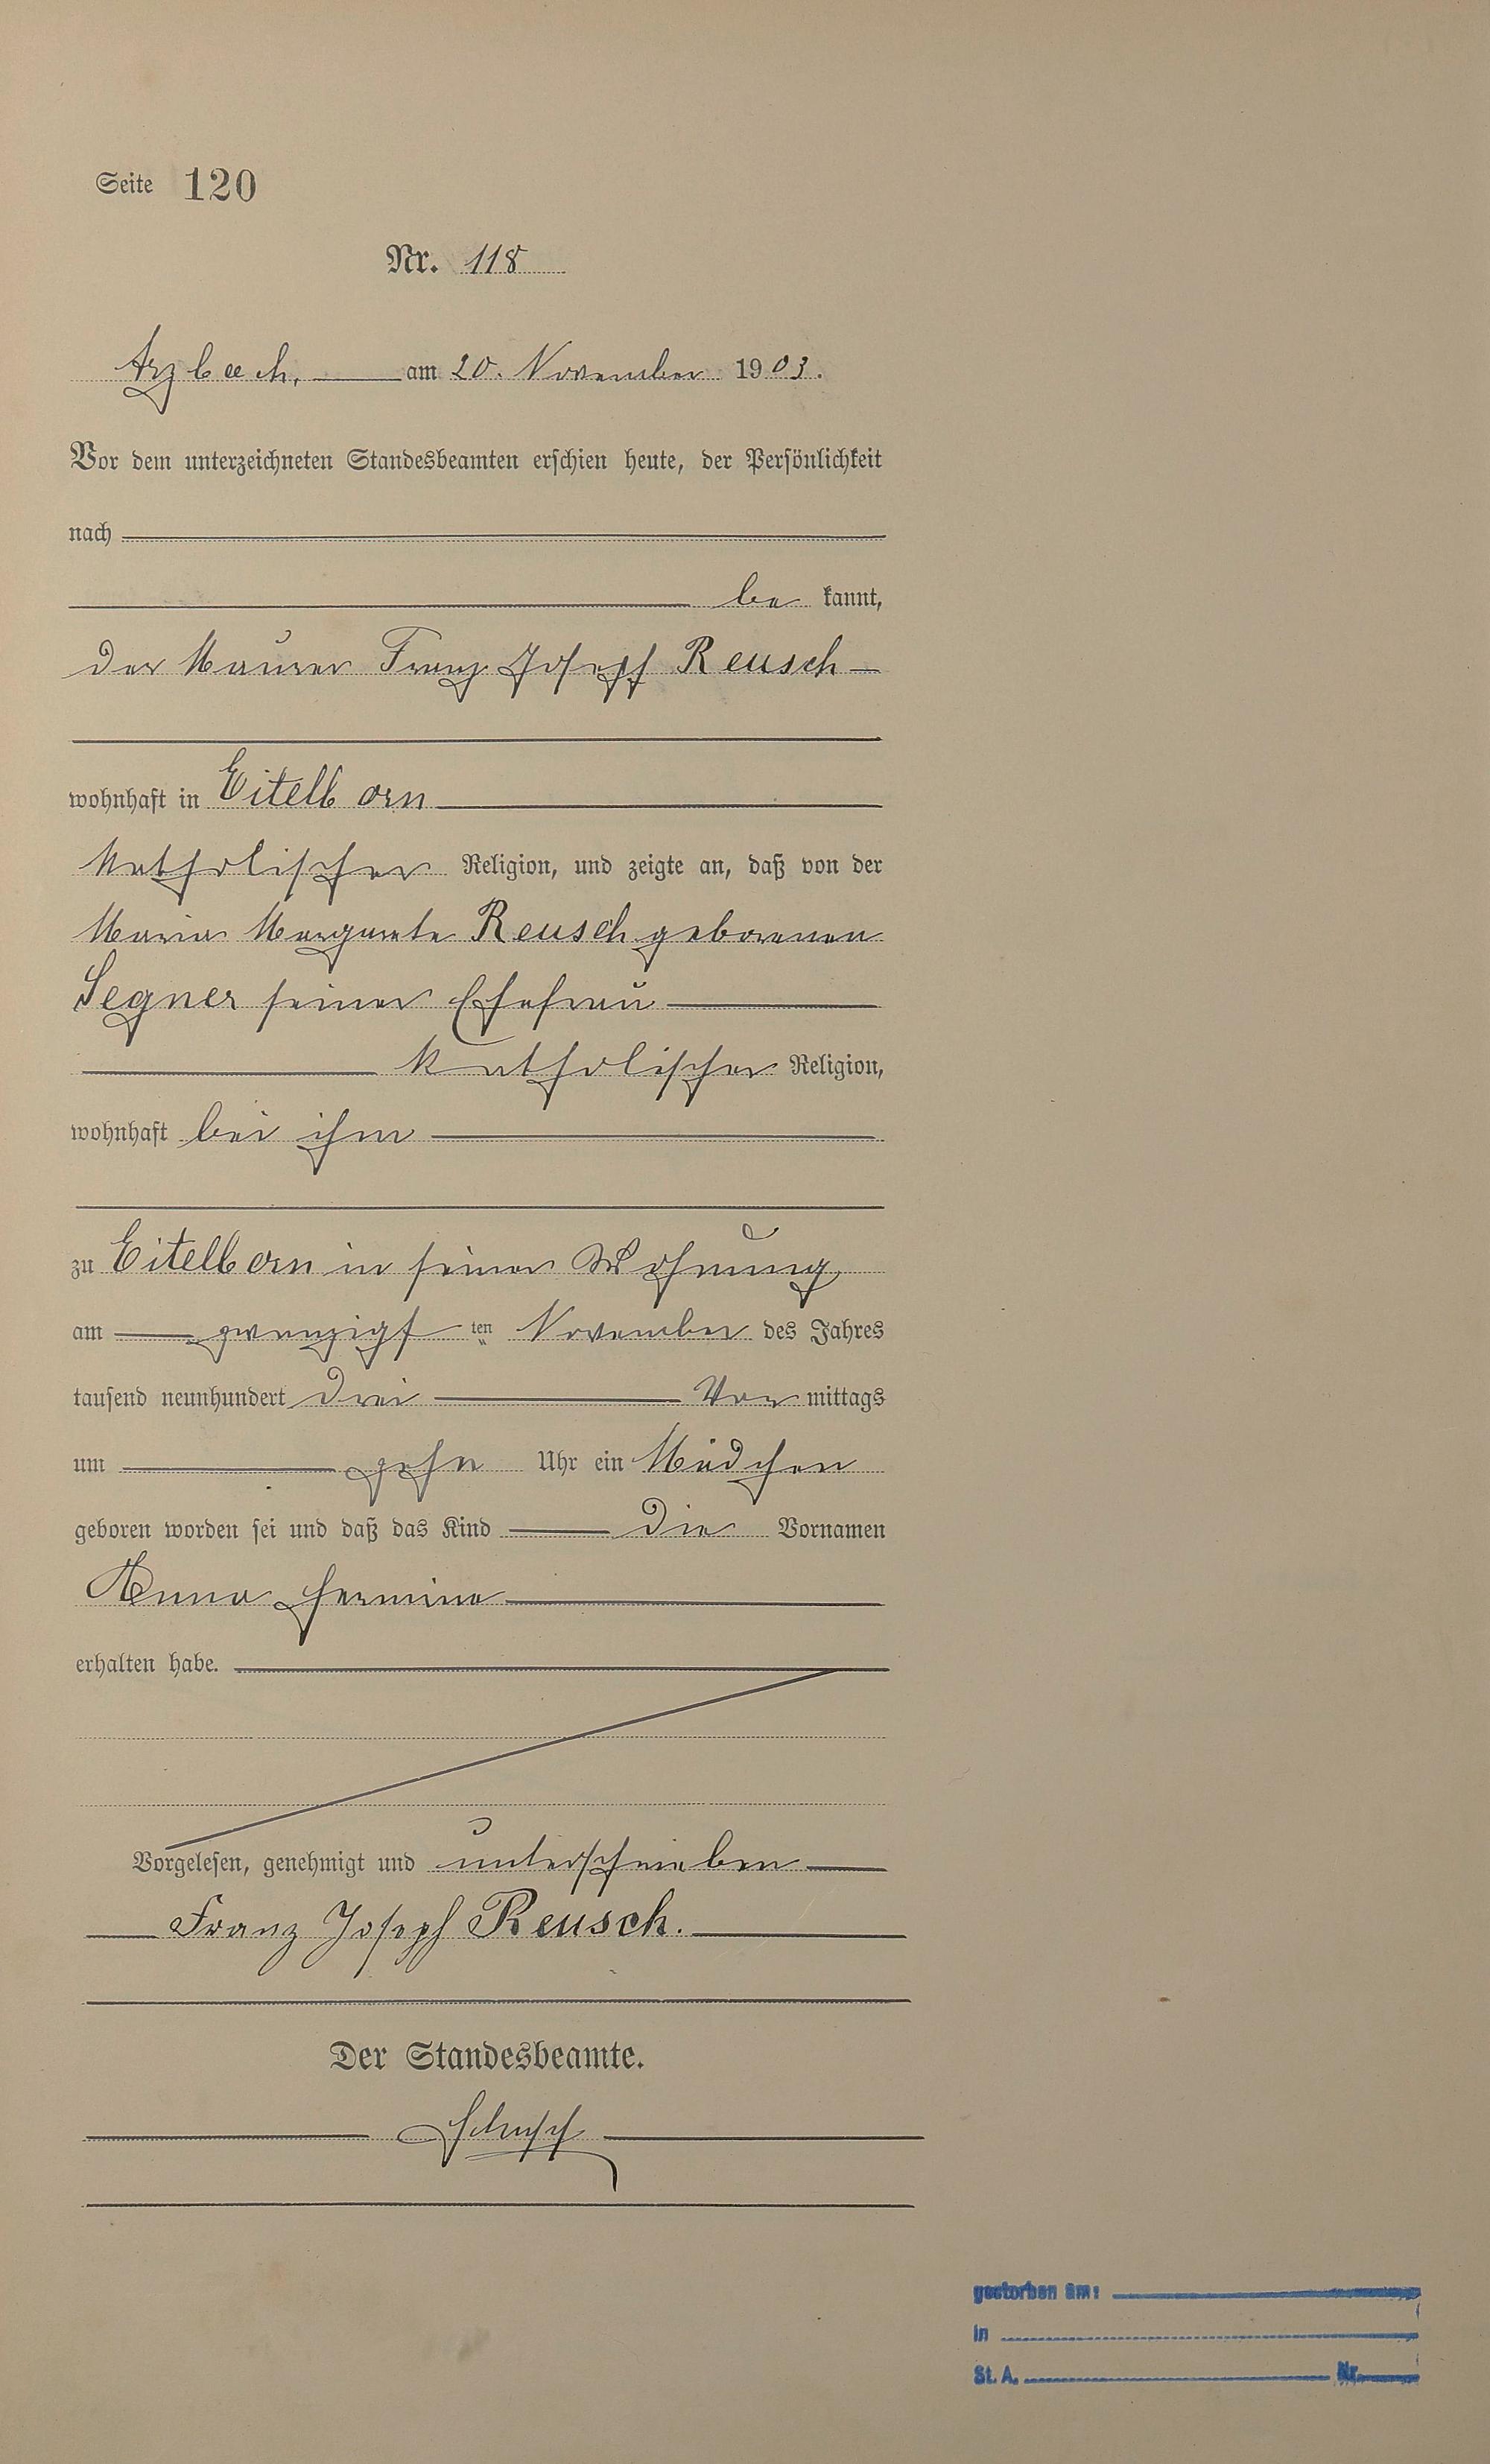 Seite 120
Nr. 118
Arzbach, am 20. November 1903.
Vor dem unterzeichneten Standesbeamten erschien heute, der Persönlichkeit
nach
be kannt,
der Maurer Franz Joseph Reusch
wohnhaft in Eitelborn
katholischer Religion, und zeigte an, daß von der
Maria Margareta Reusch geborenen
Segner seiner Ehefrau
katholischer Religion,
wohnhaft bei ihm
zu Eitelborn in seiner Wohnung
am zwanzigsten November des Jahres
tausend neunhundert drei Vor mittags
um zehn Uhr ein Mädchen
geboren worden sei und daß das Kind die Vornamen
Anna Hermina
erhalten habe.
Vorgelesen, genehmigt und unterschrieben
Franz Joseph Reusch.
Der Standesbeamte.
gestorben am:
in
St. A. Nr.